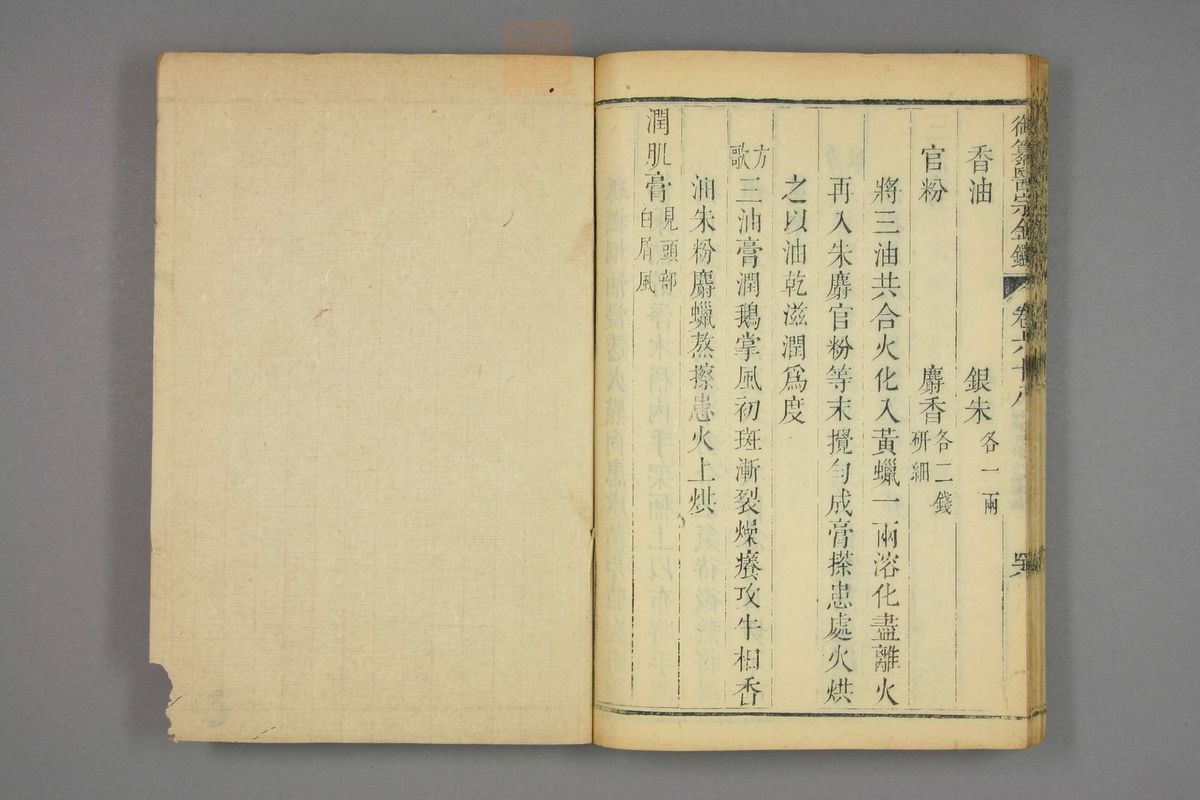 御纂醫宗金鑑 卷六十八
香油 銀朱各一兩
官粉 麝香各二錢研細
將三油共合火化入黃蠟一兩溶化盡離火
再入朱麝官粉等末攪勻成膏搽患處火烘
之以油乾滋潤爲度
方歌 三油膏潤鵝掌風初斑漸裂燥癢攻牛相香
油朱粉麝蠟熬擦患火上烘
潤肌膏見頭部白屑風